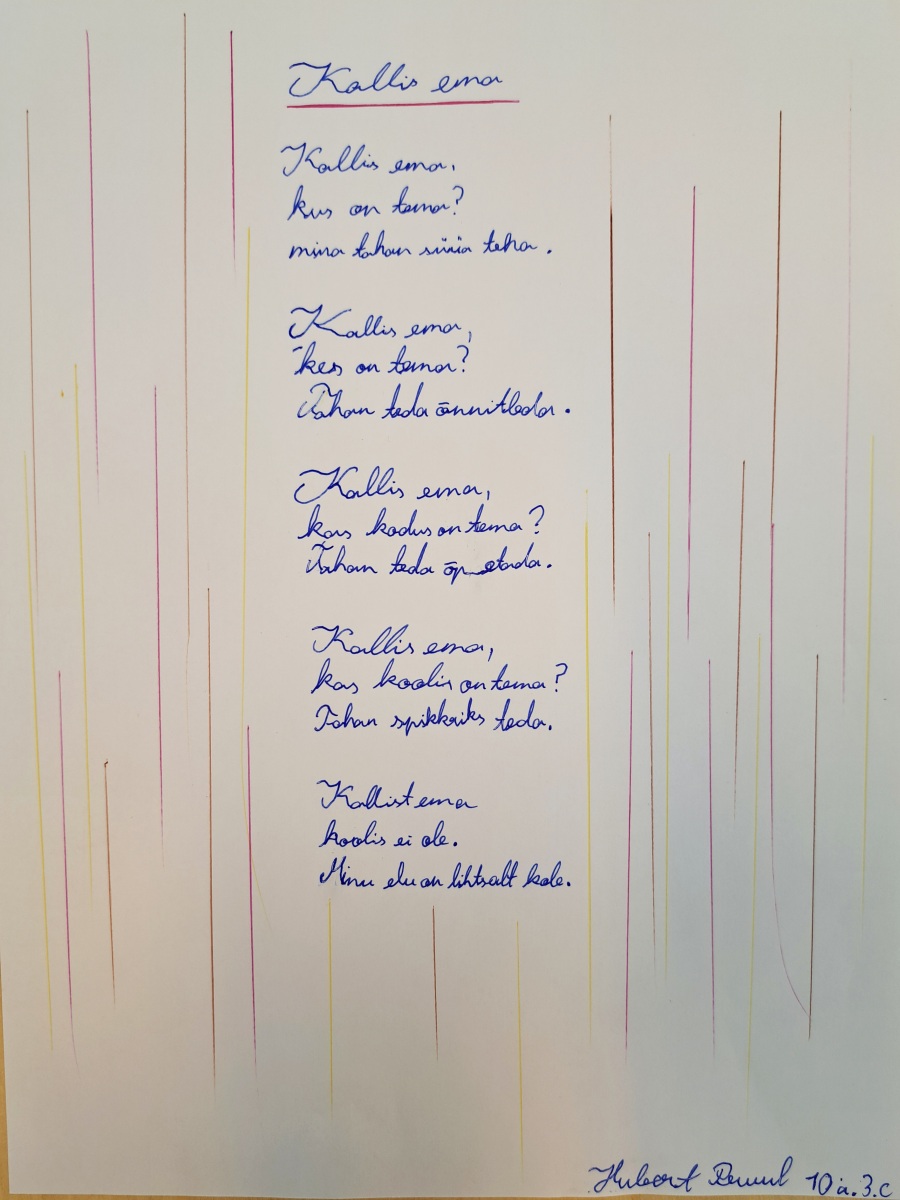 Kallis ema
Kallis ema,
kus on tema?
mina tahan süüa teha.
Kallis ema,
kes on tema?
Tahan teda õnnitleda.
Kallis ema,
kas kodus on tema?
Tahan teda õpetada.
Kallis ema,
kas koolis on tema?
Tahan spikkriks teda.
Kallist ema
koolis ei ole.
Minu elu on lihtsalt kole.
Hubert 10 a. 3.c